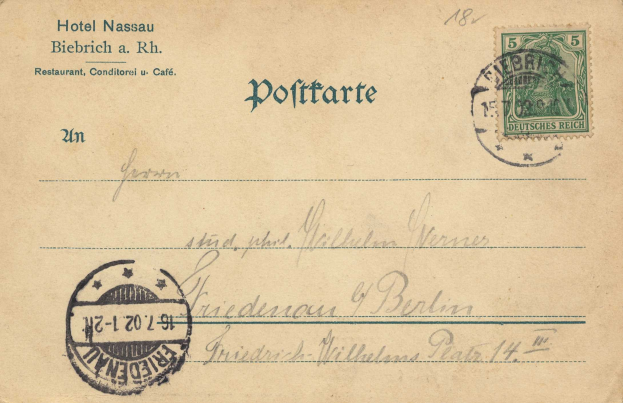 Hotel Nassau
Biebrich a. Rh.
Restaurant, Conditorei u. Café.
18.
Postkarte
5 5
DEUTSCHES REICH
BIEBRICH
15.7.02
An
Herrn
stud. phil. Wilhelm Werner
Friedenau b/Berlin
Friedrich-Wilhelms Platz 14. III
16.7.02 1-2N
FRIEDENAU